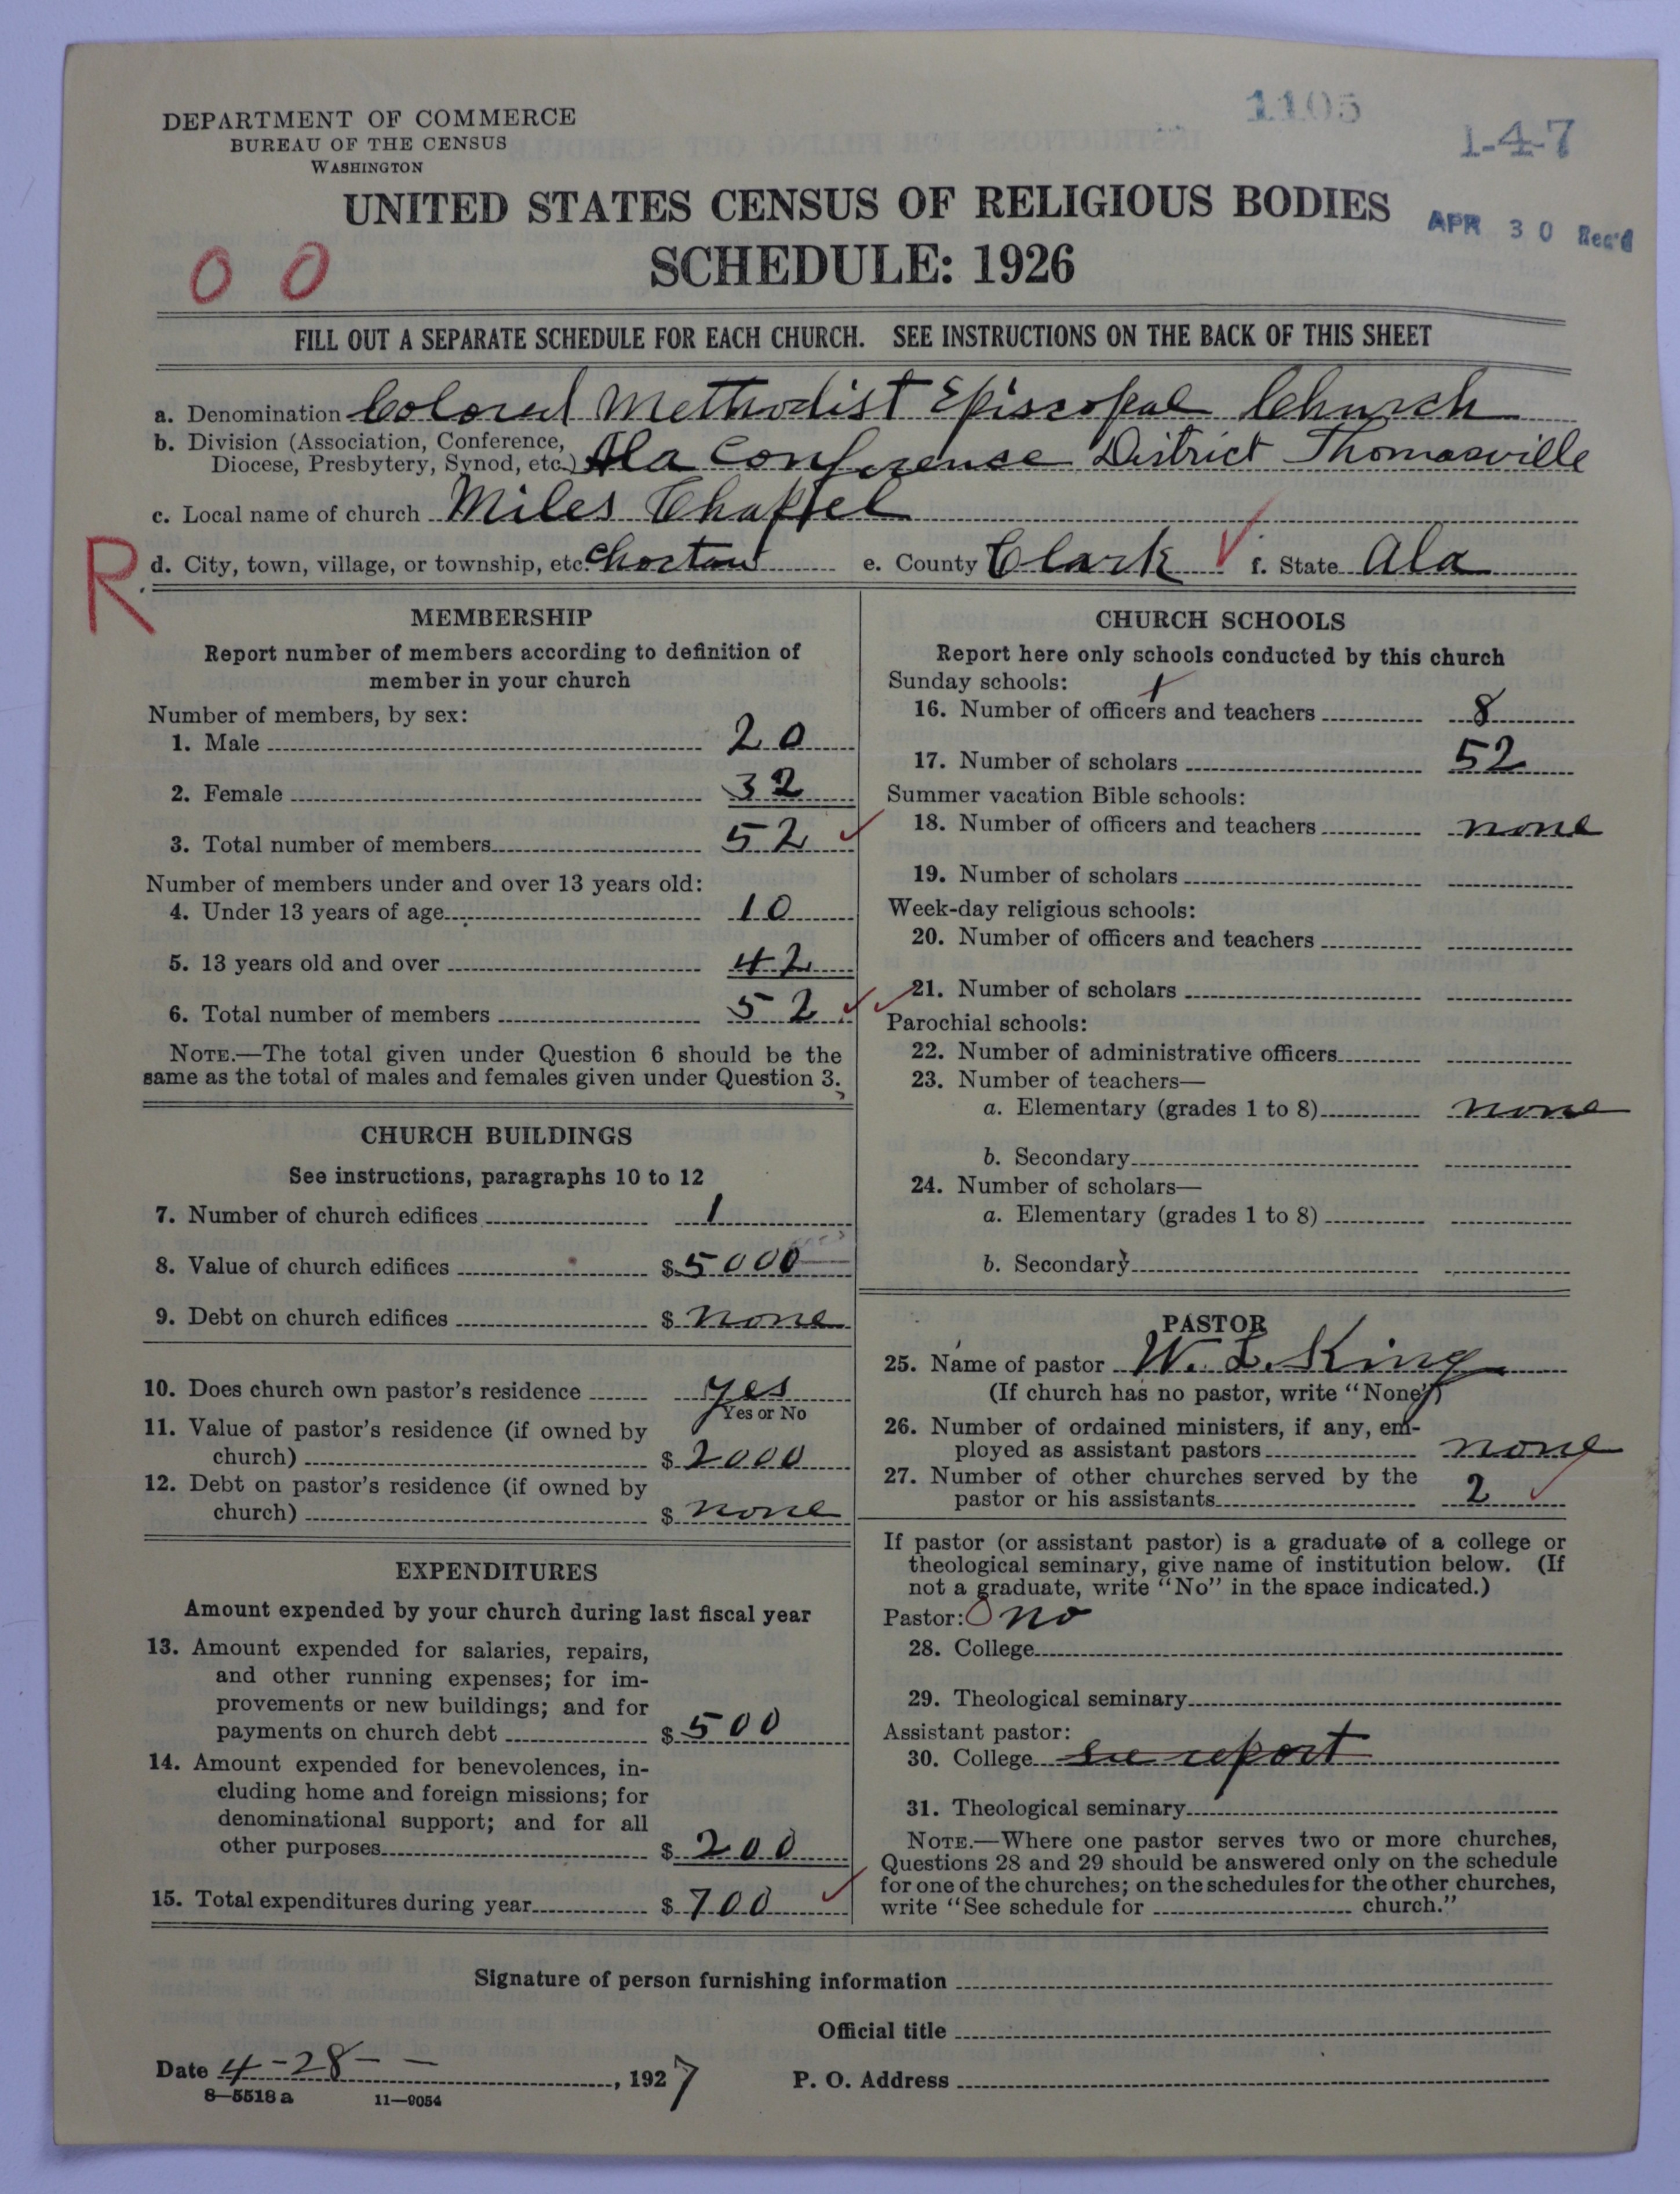 1105
1-4-7
DEPARTMENT OF COMMERCE
BUREAU OF THE CENSUS
WASHINGTON
UNITED STATES CENSUS OF RELIGIOUS BODIES
SCHEDULE: 1926
APR 30 Rec'd
0 0
FILL OUT A SEPARATE SCHEDULE FOR EACH CHURCH. SEE INSTRUCTIONS ON THE BACK OF THIS SHEET
a. Denomination Colored Methodist Episcopal Church
b. Division (Association, Conference,
Diocese, Presbytery, Synod, etc.) Ala Conference District Thomasville
c. Local name of church Miles Chappel
R
d. City, town, village, or township, etc. Choctaw e. County Clark f. State Ala
MEMBERSHIP
Report number of members according to definition of
member in your church
Number of members, by sex:
1. Male 20
2. Female 32
3. Total number of members 52
Number of members under and over 13 years old:
4. Under 13 years of age 10
5. 13 years old and over 42
6. Total number of members 52
NOTE.—The total given under Question 6 should be the
same as the total of males and females given under Question 3.
CHURCH BUILDINGS
See instructions, paragraphs 10 to 12
7. Number of church edifices 1
8. Value of church edifices $ 5000
9. Debt on church edifices $ none
10. Does church own pastor's residence yes
Yes or No
11. Value of pastor's residence (if owned by
church) $ 2000
12. Debt on pastor's residence (if owned by
church) $ none
EXPENDITURES
Amount expended by your church during last fiscal year
13. Amount expended for salaries, repairs,
and other running expenses; for im-
provements or new buildings; and for
payments on church debt $ 500
14. Amount expended for benevolences, in-
cluding home and foreign missions; for
denominational support; and for all
other purposes $ 200
15. Total expenditures during year $ 700
CHURCH SCHOOLS
Report here only schools conducted by this church
Sunday schools: 1
16. Number of officers and teachers 8
17. Number of scholars 52
Summer vacation Bible schools:
18. Number of officers and teachers none
19. Number of scholars
Week-day religious schools:
20. Number of officers and teachers
21. Number of scholars
Parochial schools:
22. Number of administrative officers
23. Number of teachers—
a. Elementary (grades 1 to 8) none
b. Secondary
24. Number of scholars—
a. Elementary (grades 1 to 8)
b. Secondary
PASTOR
25. Name of pastor W. L. King
(If church has no pastor, write "None")
26. Number of ordained ministers, if any, em-
ployed as assistant pastors none
27. Number of other churches served by the
pastor or his assistants 2
If pastor (or assistant pastor) is a graduate of a college or
theological seminary, give name of institution below. (If
not a graduate, write "No" in the space indicated.)
Pastor: 0 no
28. College
29. Theological seminary
Assistant pastor:
30. College see report
31. Theological seminary
NOTE.—Where one pastor serves two or more churches,
Questions 28 and 29 should be answered only on the schedule
for one of the churches; on the schedules for the other churches,
write "See schedule for church."
Signature of person furnishing information
Official title
Date 4-28- -, 1927 P. O. Address
8—5518 a 11—9054